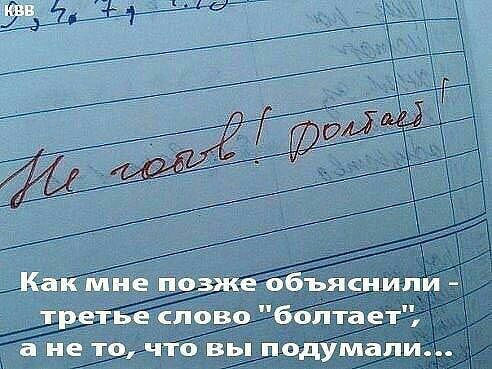 КВВ
3, 4, 7,
Не готов! Болтает!
Как мне позже объяснили -
третье слово "болтает",
а не то, что вы подумали...